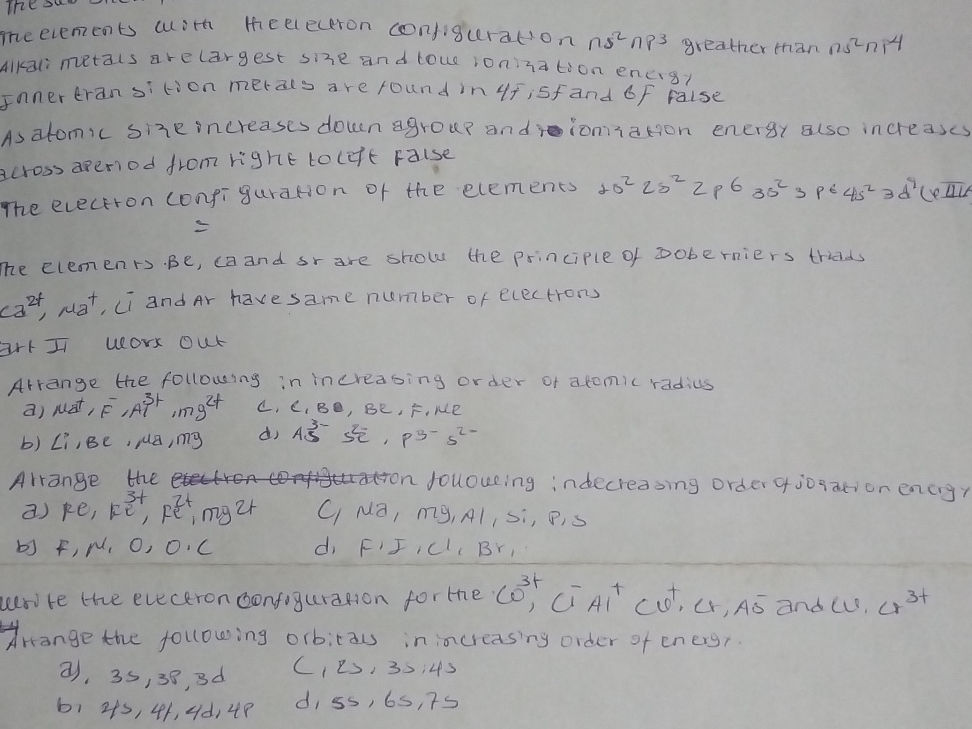 The elements with the electron configuration ns² np³ greather than ns² np⁴
Alkali metals are largest size and low ionization energy
Inner transition metals are found in 4f, 5f and 6f False
As atomic size increases down a group and ionization energy also increases
across a period from right to left False
The electron configuration of the elements 1s² 2s² 2p⁶ 3s² 3p⁶ 4s² 3d⁹
=
The elements Be, Ca and Sr are show the principle of Doberniers triads
Ca²⁺, Na⁺, Cl⁻ and Ar have same number of electrons
art II Work out
Arrange the following in increasing order of atomic radius
a) Na⁺, F⁻, Al³⁺, mg²⁺ C, C, B, Be, F, Ne
b) Li, Be, Na, mg d) As³⁻ Se²⁻, P³⁻ S²⁻
Arrange the following indecreasing order of ionation energy
a) Fe, Fe³⁺, Fe²⁺, mg2+ C, Na, mg, Al, Si, P, S
b) F, N, O, O, C d, F, I, Cl, Br,
write the electron configuration for the Co³⁺, Cl⁻ Al⁺ Cu⁺, Cr, As⁻ and Cu, Cr³⁺
Arrange the following orbitals in increasing order of energy.
a), 3s, 3p, 3d C, 2s, 3s, 4s
b, 4s, 4f, 4d, 4p d, 5s, 6s, 7s